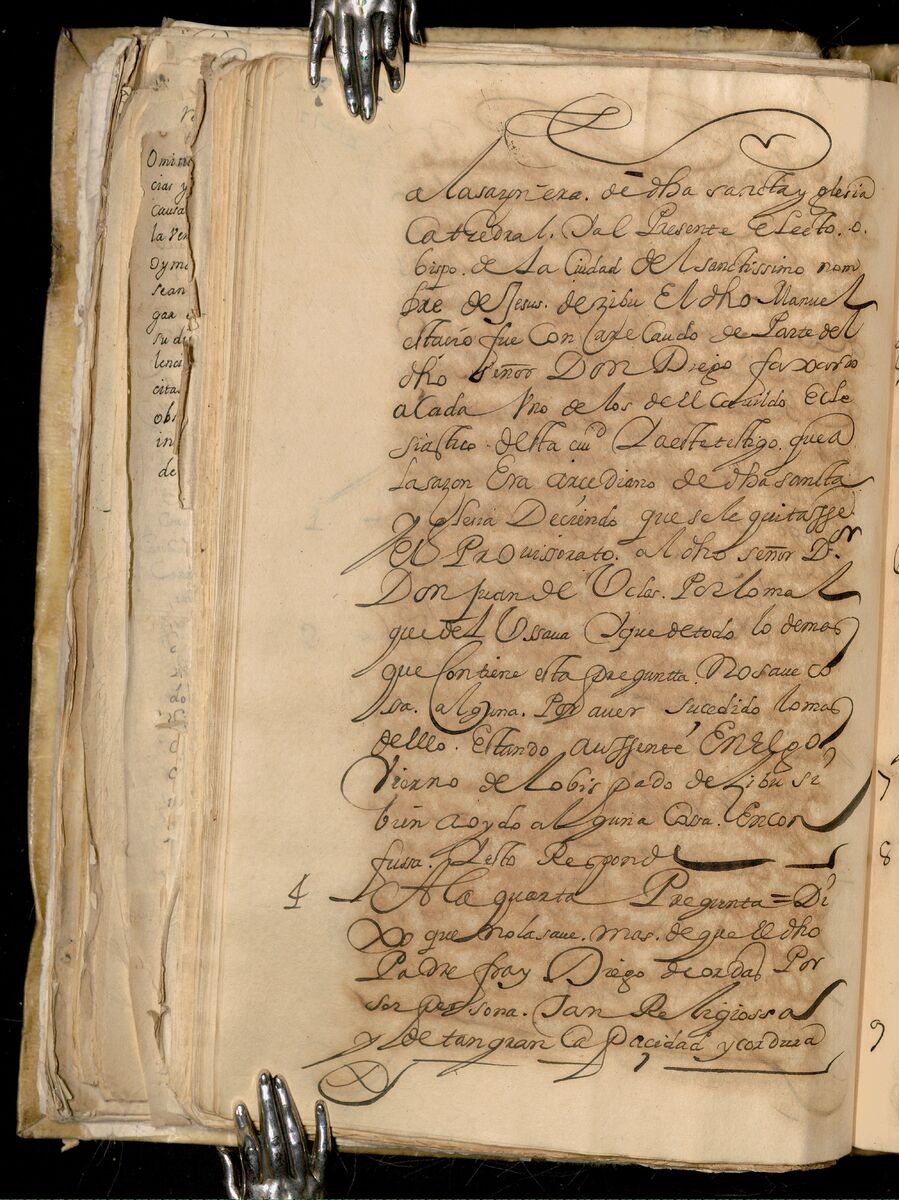 Omiti
cias y
Causa
la ven
Oymi
sean
gar
su di
lenci
cita
obs
in
de
a lasazon era. de dha sancta yglesia
Cathedral. Yal Presente electo. o.
bispo. de La Ciudad del sanctissimo nom
bre de Jesus. de zibu El dho Manuel
estacio fue Con Caudo de Parte del
dho señor Don Diego faxardo
a Cada Uno de los del Cauildo Ecle
siastico. desta ciud Yaestetestigo. que a
Lasazon Era arcediano de dha sancta
yglesia Deciendo que se le quitasse
El Prouissorato. al dho señor Dr
Don Juan de Ucles. Por lo mal
que del Ussaua Yque de todo lo demas
que Contiene esta pregunta. No saue co
sa. alguna. Por auer sucedido lo mas
dello. Estando aussente En el go
Vierno de lobispado de Zibu si
bien a oydo alguna Cosa. En con
fussa. Yesto Responde
4 A la quarta Pregunta = Di
Xo que no la saue. mas. de que El dho
Padre fray Diego de ordas Por
ser persona. Tan Religiossa
y de tan gran Capacidad y cordura
7
8
9